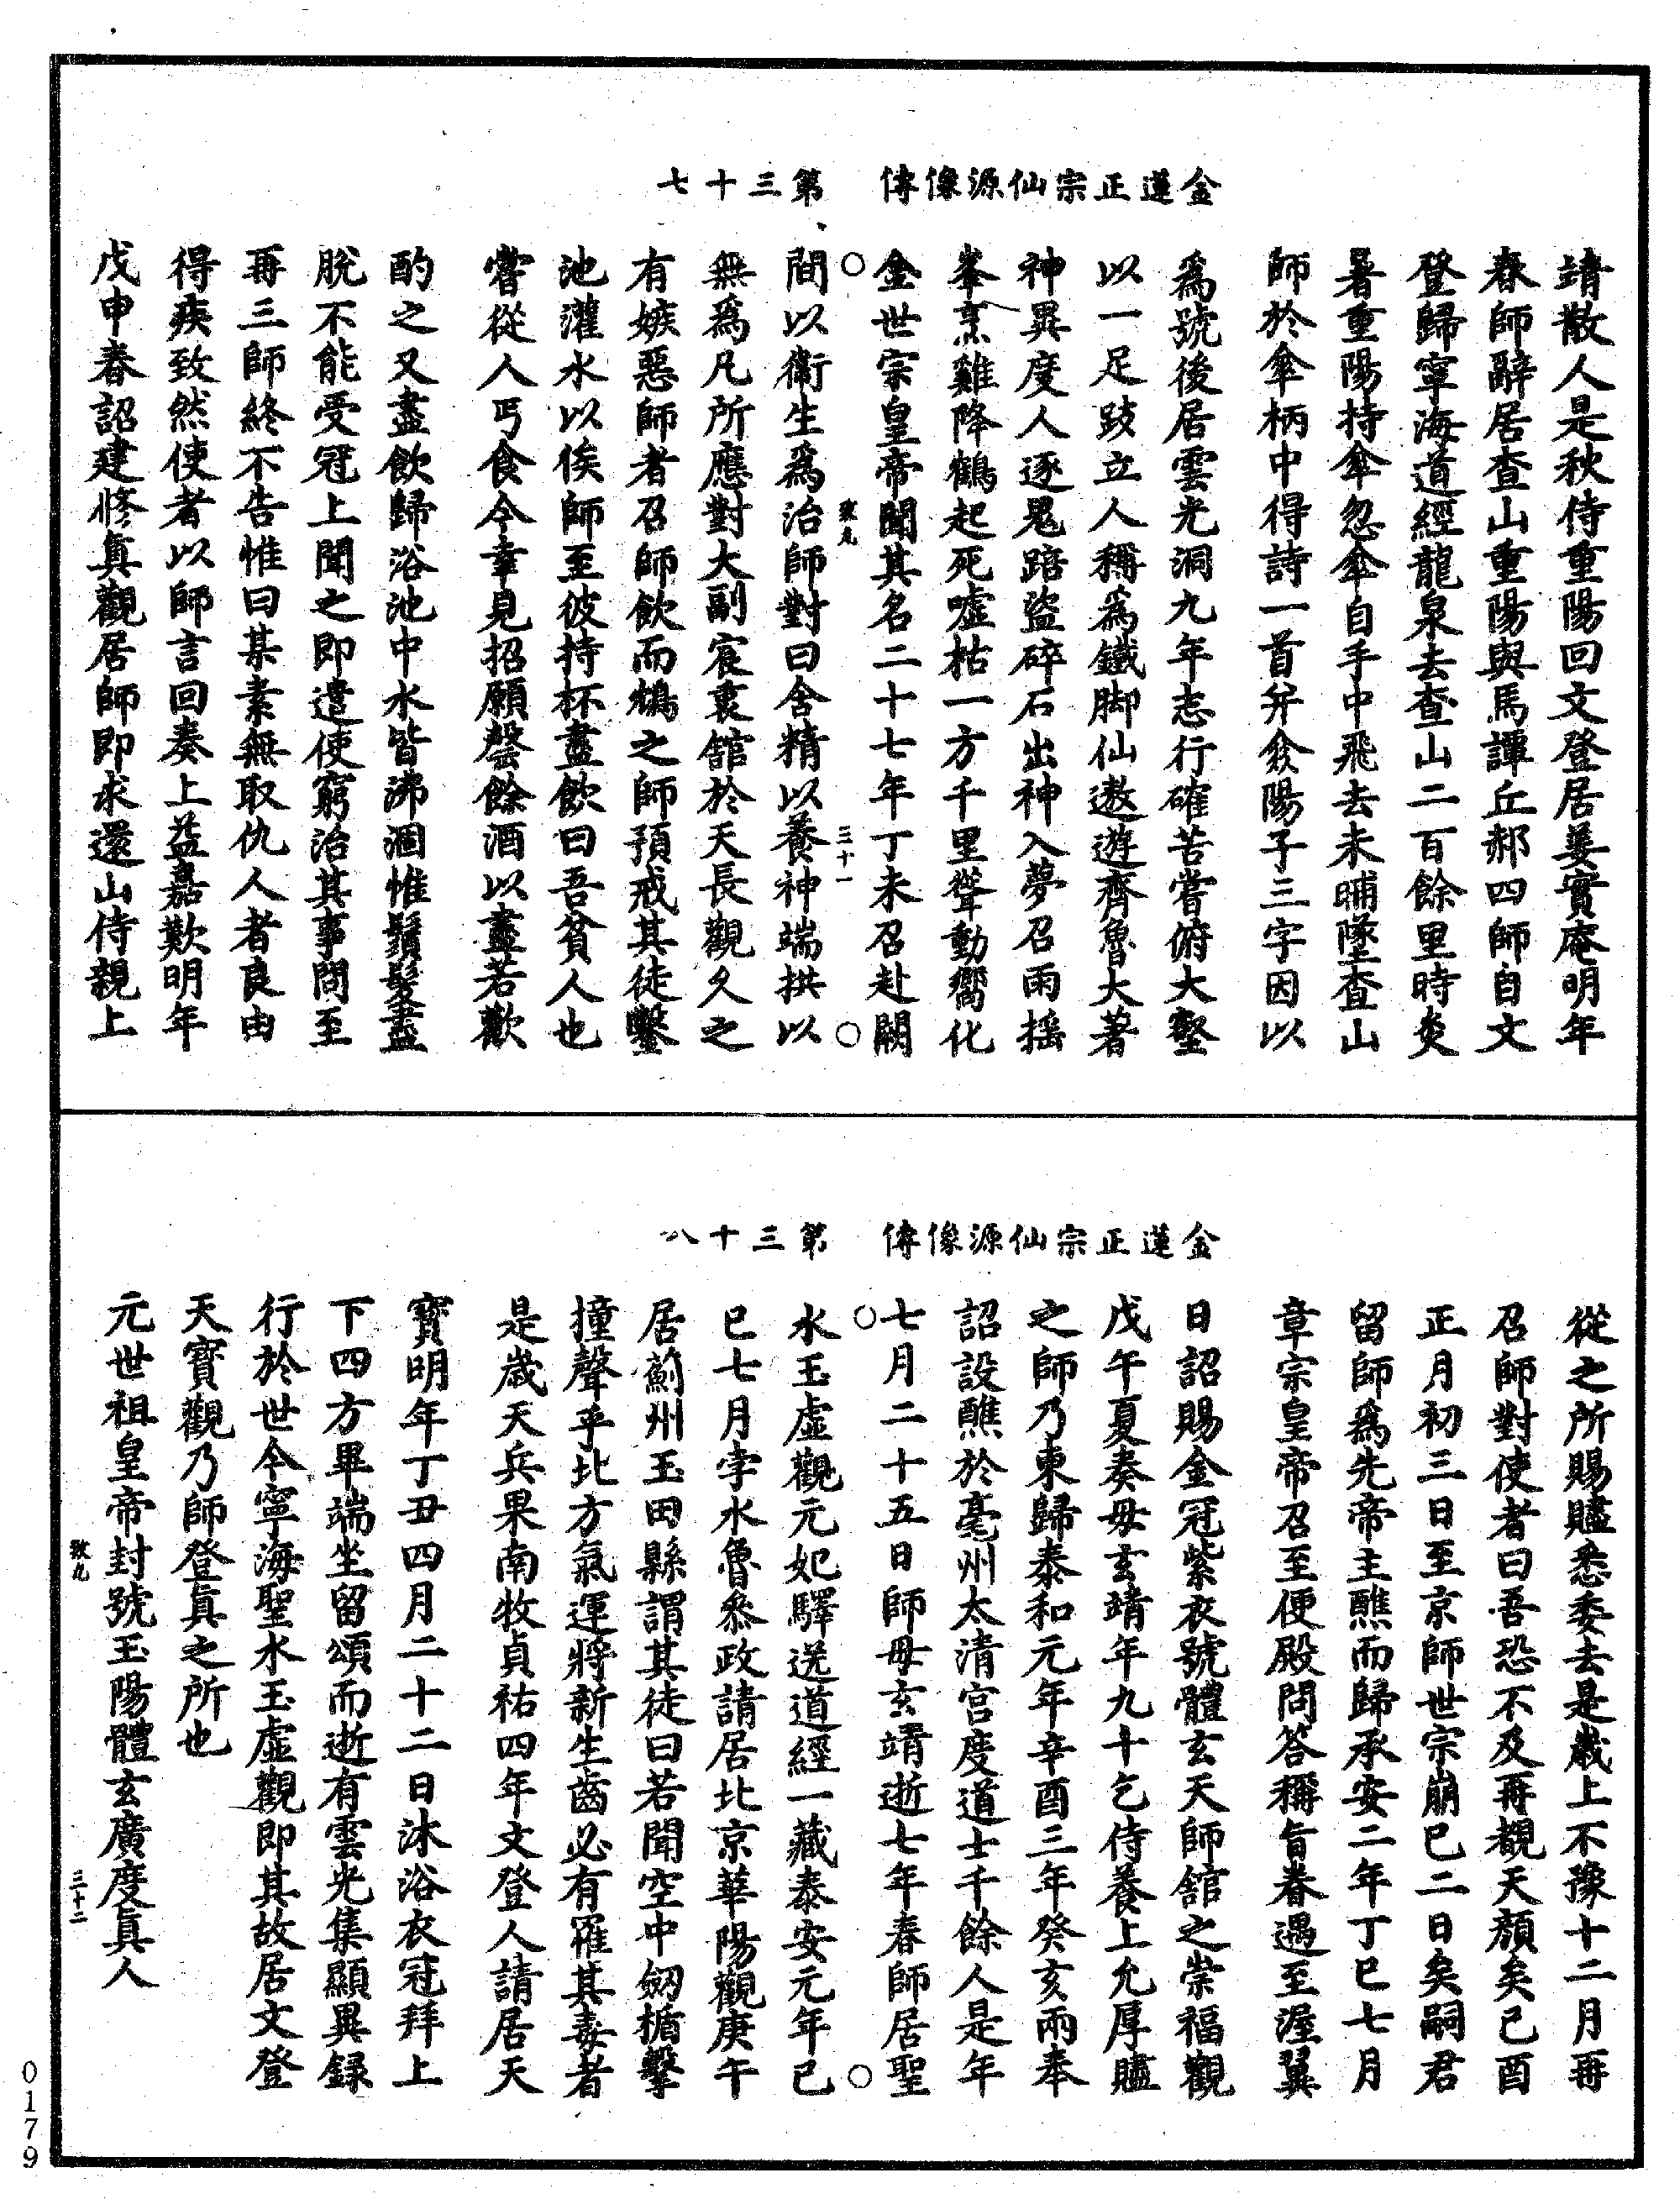 金蓮正宗仙源像傳　第三十七
靖散人是秋侍重陽回文登居姜實庵明年
春師辭居查山重陽與馬譚丘郝四師自文
登歸寧海道經龍泉去查山二百餘里時炎
暑重陽持傘忽傘自手中飛去未晡墜查山
師於傘柄中得詩一首并㑹陽子三字因以
爲號後居雲光洞九年志行確苦嘗俯大壑
以一足跂立人稱爲鐵脚仙遨遊齊魯大著
神異度人逐鬼踣盜碎石出神入夢召雨搖
峯烹雞降鶴起死噓枯一方千里聳動嚮化
金世宗皇帝聞其名二十七年丁未召赴闕
間以衛生爲治師對曰含精以養神端拱以
無爲凡所應對大副宸衷舘於天長觀久之
有嫉惡師者召師飲而鴆之師預戒其徒鑿
池灌水以俟師至彼持杯盡飲曰吾貧人也
嘗從人丐食今幸見招願罄餘酒以盡若歡
酌之又盡飲歸浴池中水皆沸涸惟鬚髮盡
脫不能受冠上聞之即遣使窮治其事問至
再三師終不告惟曰某素無取仇人者良由
得疾致然使者以師言回奏上益嘉歎明年
戊申春詔建修真觀居師即求還山侍親上
致九
三十一
金蓮正宗仙源像傳　第三十八
從之所賜贐悉委去是歲上不豫十二月再
召師對使者曰吾恐不及再覩天顏矣己酉
正月初三日至京師世宗崩已二日矣嗣君
留師爲先帝主醮而歸承安二年丁巳七月
章宗皇帝召至便殿問答稱旨眷遇至渥翼
日詔賜金冠紫衣號體玄天師舘之崇福觀
戊午夏奏母玄靖年九十乞侍養上允厚贐
之師乃東歸泰和元年辛酉三年癸亥兩奉
詔設醮於亳州太清宮度道士千餘人是年
七月二十五日師母玄靖逝七年春師居聖
水玉虛觀元妃驛送道經一藏泰安元年己
巳七月孛水魯叅政請居北京華陽觀庚午
居薊州玉田縣謂其徒曰若聞空中劒楯擊
撞聲乎北方氣運將新生齒必有罹其毒者
是歲天兵果南牧貞祐四年文登人請居天
寶明年丁丑四月二十二日沐浴衣冠拜上
下四方畢端坐留頌而逝有雲光集顯異録
行於世今寧海聖水玉虛觀即其故居文登
天寶觀乃師登真之所也
元世祖皇帝封號玉陽體玄廣度真人
致九
三十二
0179